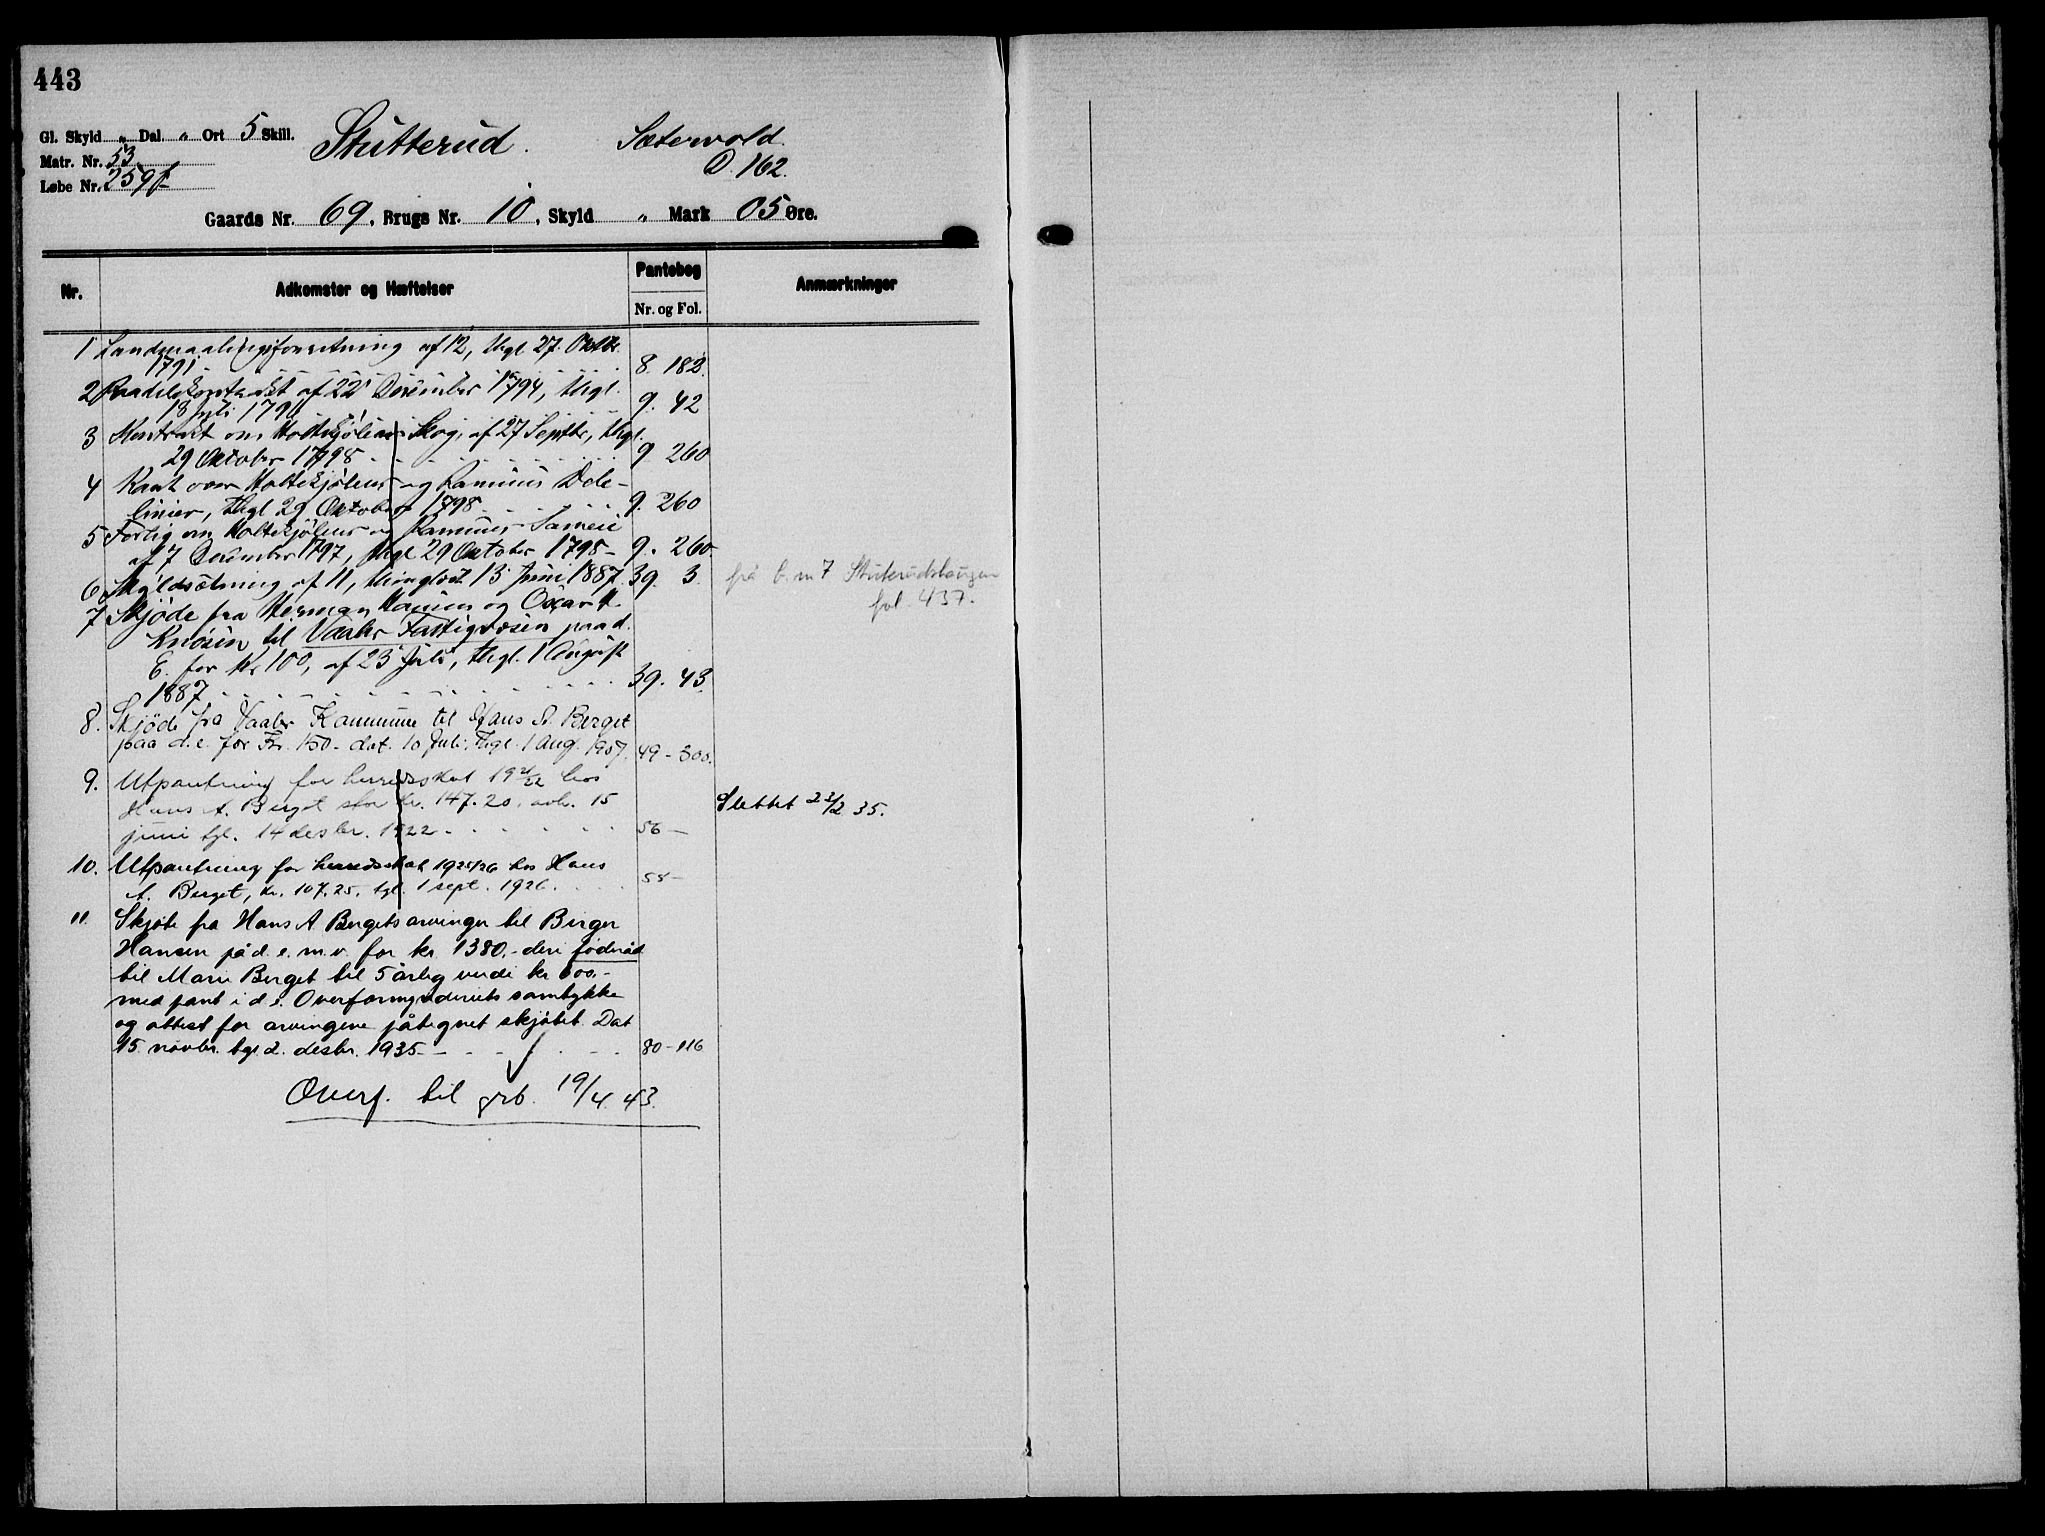 443
Gl. Skyld „ Dal. „ Ort 5 Skill.
Matr. Nr. 53
Løbe Nr. 259f
Stutterud. Sætervold.
D. 162.
Gaards Nr. 69, Brugs Nr. 10, Skyld „ Mark 05 Øre.
Nr. Adkomster og Hæftelser Pantebog Anmærkninger
Nr. og Fol.
1 af 12, thgl 27. Oktbr.
1791 8. 182.
2 af 22 December 1794, thgl.
18 Juli 9. 42
3 Kontrakt om Skog, af 27 Septbr, thgl.
29 Oktober 1798 9 260
4 Kart over og Dele-
linier, thgl 29 Oktober 1798 9. 260
5 Forlig om og Sameie
af 7 December 1797, thgl 29 Oktober 1798 – 9. 260
6 Skyldsætning af 11, thinglæst 13 Juni 1887. 39. 3. frå b. nr 7 Stuterudshaugen
fol. 437.
7 Skjøde fra Herman Hansen og Oscar H.
til Vaaler Fattigvæsen paa d.
E. for Kr 100, af 23 Juli, thgl. 1 August
1887 39. 43.
8. Skjøde fra Vaaler Kommune til Hans A. Berget
paa d. e. for Kr. 150 – dat. 10 Juli, thgl. 1 Aug. 1907. 49 – 300.
9. Utpantning for herredsskat 19 21/22 hos
Hans A. Berget stor kr. 147.20, avh. 15
juni tgl. 14 desbr. 1922 56 – Slettet 22/2 35.
10. Utpantning for herredsskat 1925/26 hos Hans
A. Berget, kr. 107.25, tgl. 1 sept. 1926. 58 –
11. Skjøte fra Hans A Bergets arvinger til Birger
Hansen på d. e. m. v. for kr. 1380.– deri føderåd
til Marie Berget til 5 årlig verdi kr
med pant i d e. Overformynderiets samtykke
og attest for arvingene påtegnet skjøtet. Dat
15. novbr. tgl 2. desbr. 1935 80 – 116
Overf. til grb. 19/4. 43.